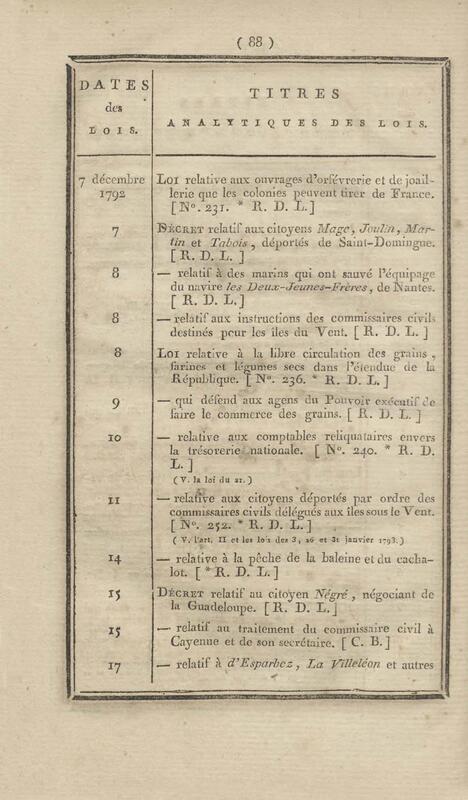 ( 88 )
DATES
des
LOIS.
TITRES
ANALYTIQUES DES LOIS.
7 décembre
1792
LOI relative aux ouvrages d'orfévrerie et de joail-
lerie que les colonies peuvent tirer de France.
[ No. 231. * R. D. L. ]
7
DÉCRET relatif aux citoyens Mage, Joulin, Mar-
tin et Tabois, déportés de Saint-Domingue.
[ R. D. L. ]
8
— relatif à des marins qui ont sauvé l'équipage
du navire les Deux-Jeunes-Frères, de Nantes.
[ R. D. L. ]
8
— relatif aux instructions des commissaires civils
destinés pour les îles du Vent. [ R. D. L. ]
8
LOI relative à la libre circulation des grains,
farines et légumes secs dans l'étendue de la
République. [ No. 236. * R. D. L. ]
9
— qui défend aux agens du Pouvoir exécutif de
faire le commerce des grains. [ R. D. L. ]
10
— relative aux comptables reliquataires envers
la trésorerie nationale. [ No. 240. * R. D.
L. ]
( V. la loi du 21. )
11
— relative aux citoyens déportés par ordre des
commissaires civils délégués aux îles sous le Vent.
[ No. 252. * R. D. L. ]
( V. l'art. II et les lois des 3, 26 et 31 janvier 1793. )
14
— relative à la pêche de la baleine et du cacha-
lot. [ * R. D. L. ]
15
DÉCRET relatif au citoyen Négré, négociant de
la Guadeloupe. [ R. D. L. ]
15
— relatif au traitement du commissaire civil à
Cayenne et de son secrétaire. [ C. B. ]
17
— relatif à d'Esparbez, La Villeléon et autres